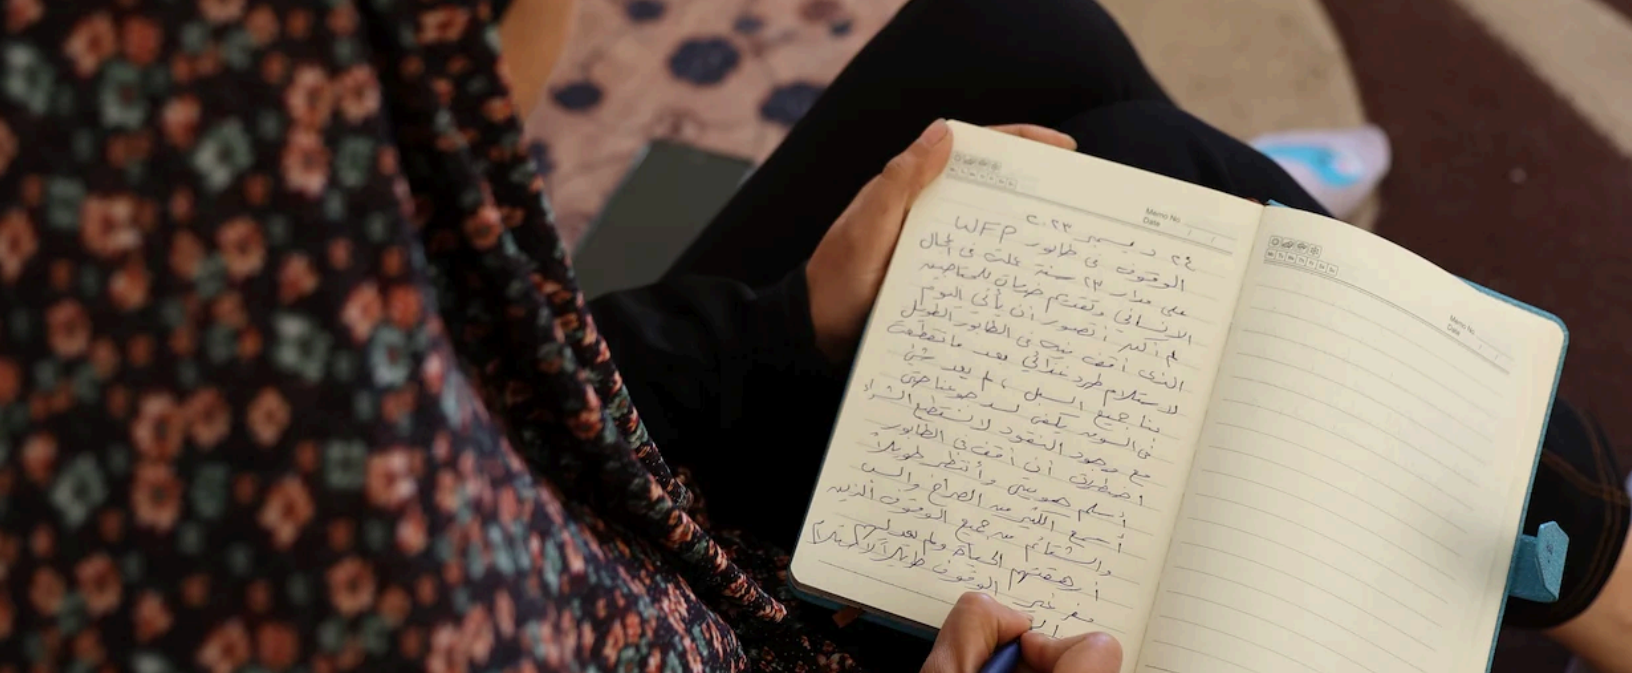 Memo No.
Date
٢٤ ديسمبر ٢٠٢٣
الوقوف في طابور WFP
على مدار ٢٣ سنة عملت في المجال
الإنساني وتقديم خدمات للمحتاجين
لم أكن أتصور أن يأتي اليوم
الذي أقف فيه في الطابور الطويل
لاستلام طرد غذائي بعد ما تقطعت
بنا جميع السبل ، لم يعد شئ
في السوق يكفي لسد جوعنا حتى
مع وجود النقود لا نستطيع الشراء
اضطرني أن أقف في الطابور
أسلم هويتي وأنتظر طويلاً
أسمع الكثير من الصراخ والسب
والشتائم من جميع الوقوف الذين
أرهقتهم الحياة ولم يعد لهم
مفر غير الوقوف طويلاً لاستلام
Memo No.
Date